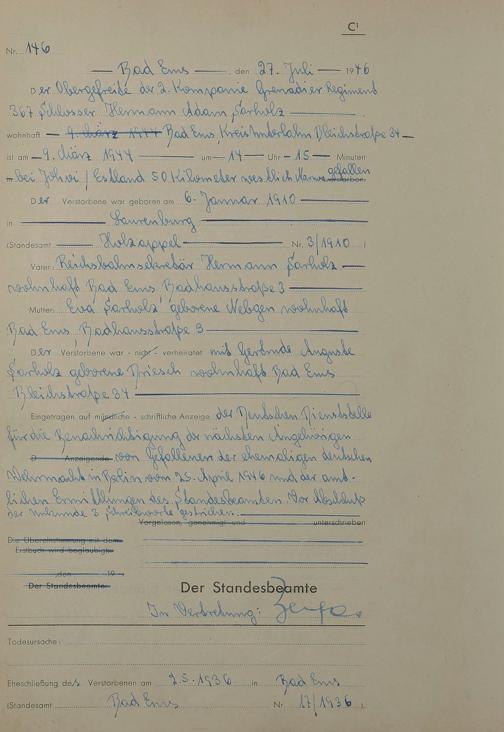 C¹
Nr. 146
Bad Ems, den 27. Juli 1946
Der Obergefreite der 2. Kompanie Grenadier Regiment
367 Schlosser Hermann Adam Sarholz
wohnhaft 9. März 1944 Bad Ems, Kreis Unterlahn Bleichstraße 34
ist am 9. März 1944 um 14 Uhr 15 Minuten
bei Jöhvi / Estland 50 Kilometer westlich Narwa gefallen verstorben.
Der Verstorbene war geboren am 6. Januar 1910
in Laurenburg
(Standesamt Holzappel Nr. 3/1910)
Vater: Reichsbahnsekretär Hermann Sarholz
wohnhaft Bad Ems Badhausstraße 3
Mutter: Eva Sarholz geborene Nebgen wohnhaft
Bad Ems, Badhausstraße 3
Der Verstorbene war - nicht - verheiratet mit Gertrude Auguste
Sarholz geborene Briesch wohnhaft Bad Ems
Bleichstraße 34
Eingetragen auf mündliche - schriftliche Anzeige der Deutschen Dienststelle
für die Benachrichtigung der nächsten Angehörigen
D Anzeigende von Gefallenen der ehemaligen deutschen
Wehrmacht in Berlin vom 25. April 1946 und der amt-
lichen Ermittlungen des Standesbeamten. Vor Abschluß
der Urkunde 3 Schreibworte gestrichen.
Vorgelesen, genehmigt und unterschrieben
Die Übereinstimmung mit dem
Erstbuch wird beglaubigt
, den 19
Der Standesbeamte
Der Standesbeamte
In Vertretung:
Todesursache:
Eheschließung de/s Verstorbenen am 2.5.1936 in Bad Ems
(Standesamt Bad Ems Nr. 17/1936).